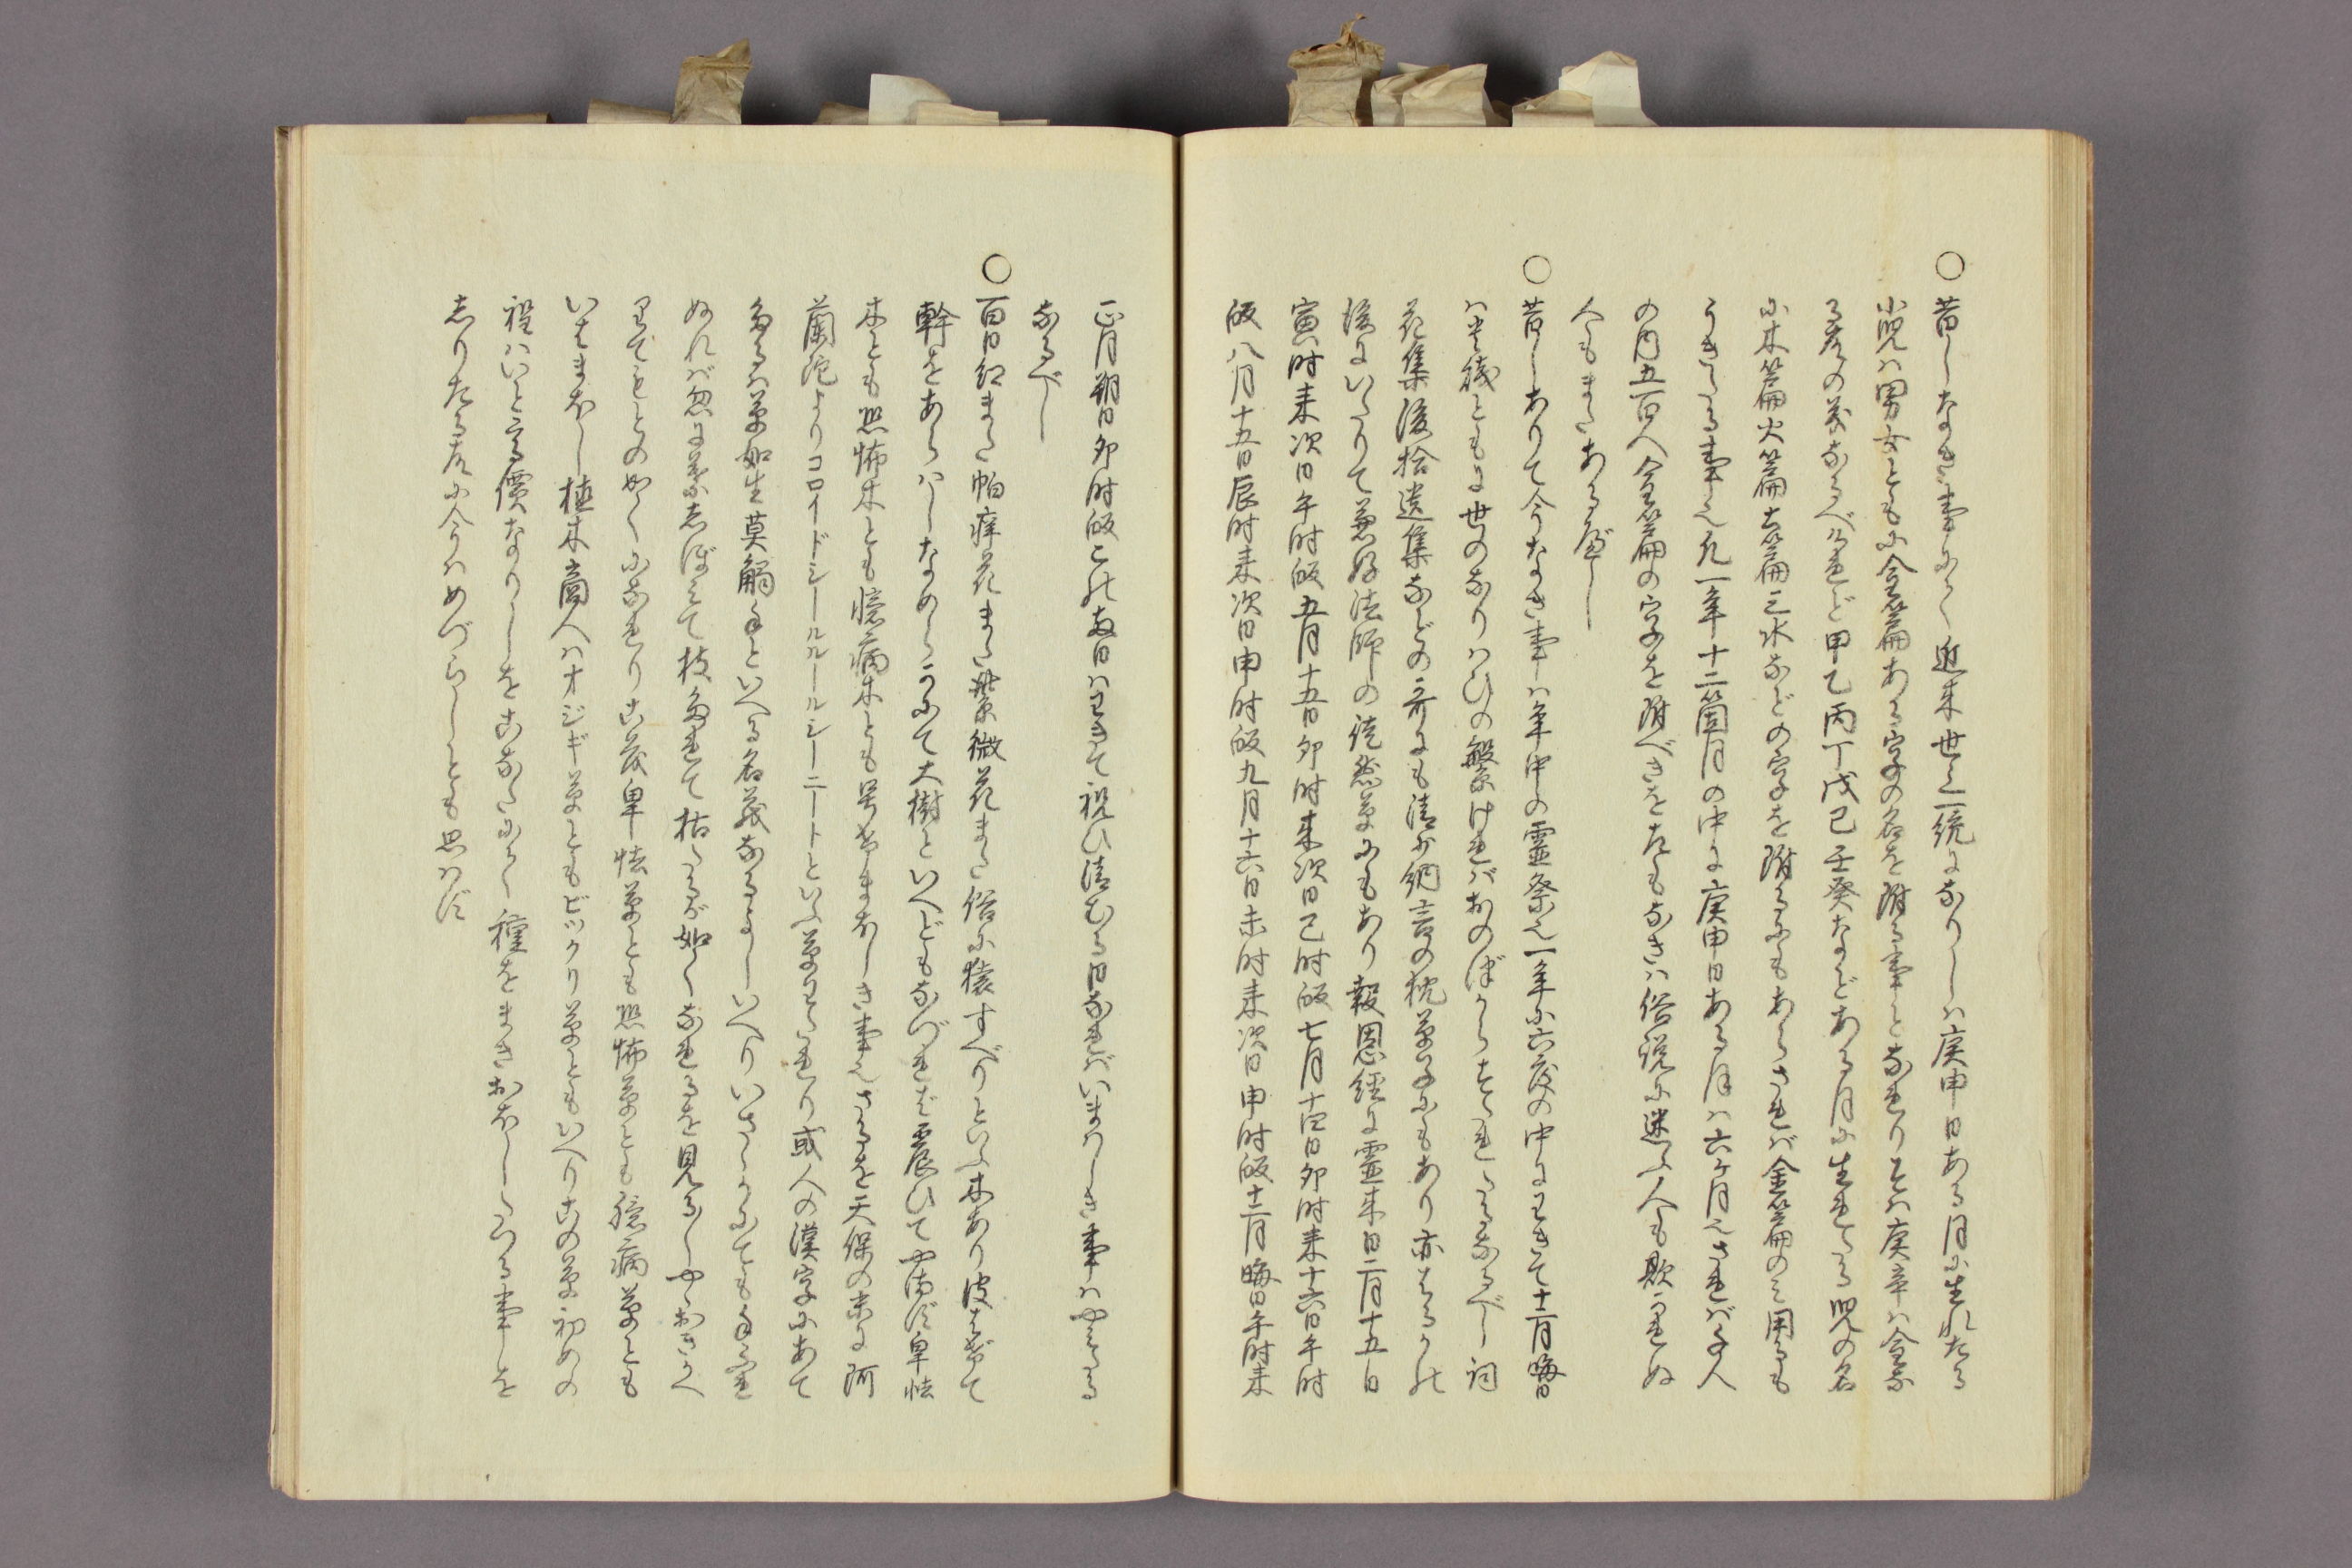 ○昔しなき事にて近来世上一統になりしハ庚申日ある月に生れたる
小児ハ男女ともに金篇ある字の名を附る事となれりそハ庚辛ハ金気
る故の義なるべけれど甲乙丙丁戊己壬癸などある月に生れたる児の名
に木篇火篇土篇三水などの字を附るにもあらされバ金篇のミ用るも
うきたる事也凡一年十二箇月の中に庚申日ある月ハ六ケ月也されバ千人
の内五百人金篇の字を附べきをたもなきハ俗説に迷ふ人も欺かれぬ
人もまたある歟し
○昔しありて今なき事ハ年中の霊祭也一年に六度の中にわきて十二月晦日
ハ儀ともに世のなりハひの繁けれバおのづからすたれたるなるべし詞
花集後拾遺集などの哥にも清少納言の枕草子にもあり亦はるかに
後にいたりて兼好法師の徒然草にもあり報恩経に霊来日二月十五日
寅時来次日午時皈五月十五日卯時来次日巳時皈七月十四日卯時来十六日午時
皈八月十五日辰時来次日申時皈九月十六日未時来次日申時皈十二月晦日午時来
正月朔日卯時皈とれ其日ハわきて祝ひ清むる日なれバいまハしき事ハやめたる
なるべし
○百日紅また怕痒花また紫微花また俗に猿すべりといふ木あり皮はげて
幹をあらハしなめらかにて大樹といへどもなづれば震ひてやまず卑怯
木とも恐怖木とも臆病木とも号けまほしき事也さるを天保の末に阿
蘭陀よりコロイドシールルールシーニートといふ草わたれり或人の漢字にあて
たるハ草如生莫觸手といへる名義なるよしいへりいさゝかにても手ふれ
ぬれバ忽に葉しぼミて枝たれて枯たるが如くなれるを見るしやゝおきかへ
りてもとのかくになれりこハ卑怯草とも恐怖草とも臆病草とも
いはまほし植木商人ハオジギ草ともビックリ草ともいへりこの草初めの
程ハいと高價なりしをこなたにて種をまきおほしたつる事を
しりたる故に今ハめづらしとも思ハず